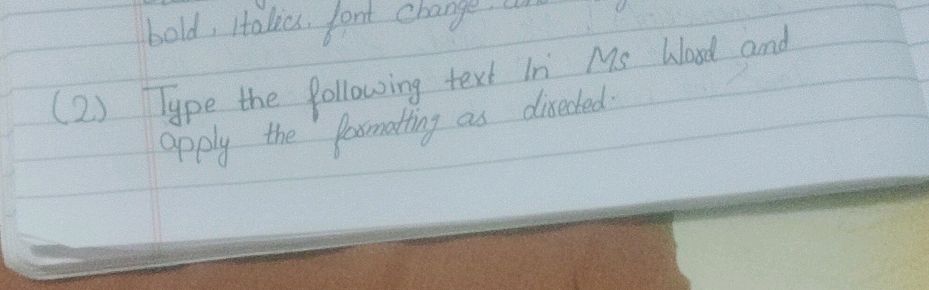 bold, Italics, font change,
(2) Type the following text In Ms Word and
apply the formatting as directed.